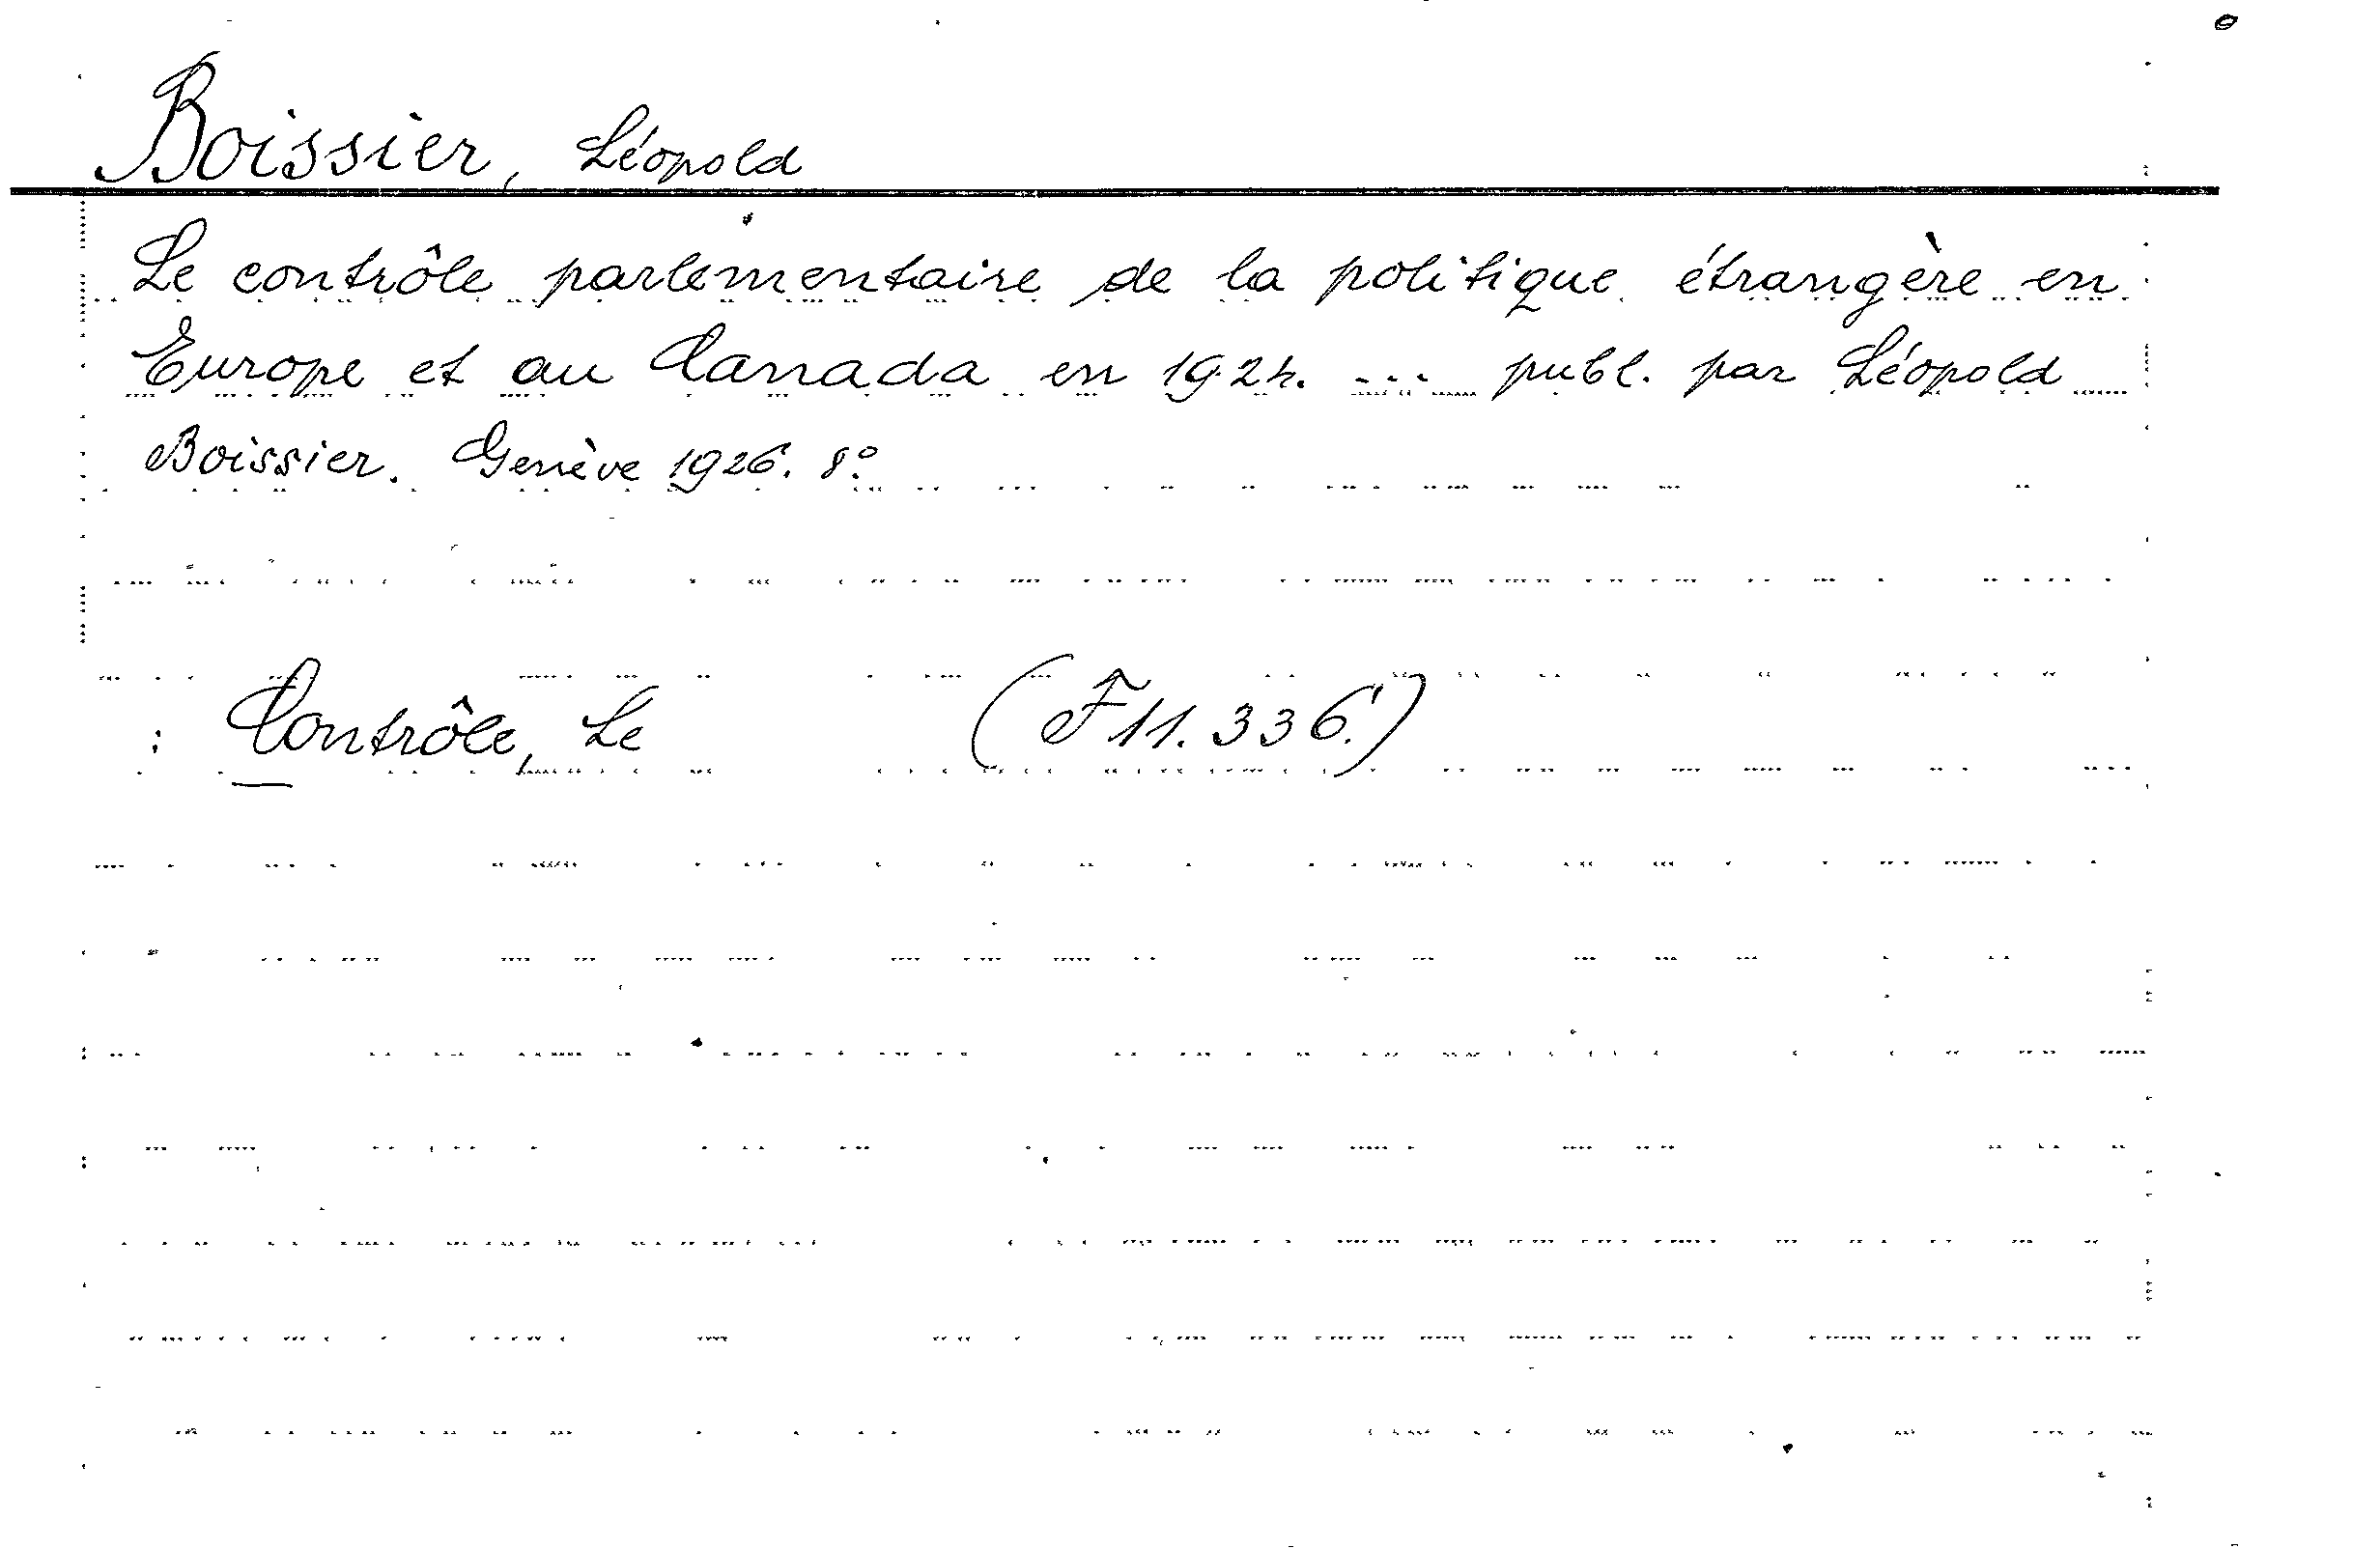 Boissier, Léopold
Le contrôle parlementaire de la politique étrangère en
Europe et au Canada en 1924. ... publ. par Léopold
Boissier. Genève 1926. 8°.
: Contrôle, Le (F 11.336.)